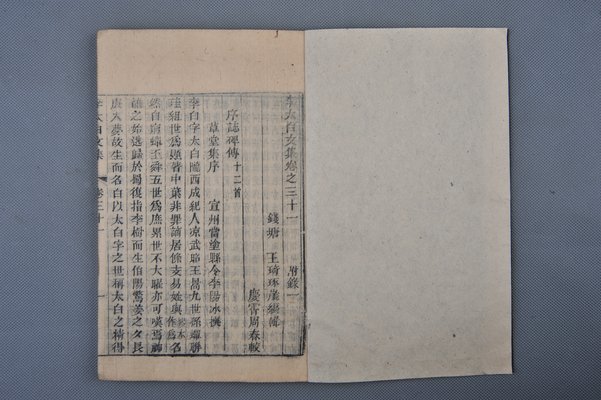 李太白文集卷之三十一
附錄一
錢塘 王琦琢崖編輯
慶霄周春較
序誌碑傳十二首
草堂集序 宣州當塗縣令李陽冰撰
李白字太白隴西成紀人涼武昭王暠九世孫蟬聯
珪組世為顯著中葉非罪謫居條支易姓與名
然自窮蟬至舜五世為庶累世不大曜亦可嘆焉神
龍之始逃歸於蜀復指李樹而生伯陽驚姜之夕長
庚入夢故生而名白以太白字之世稱太白之精得
李太白文集 卷三十一 一